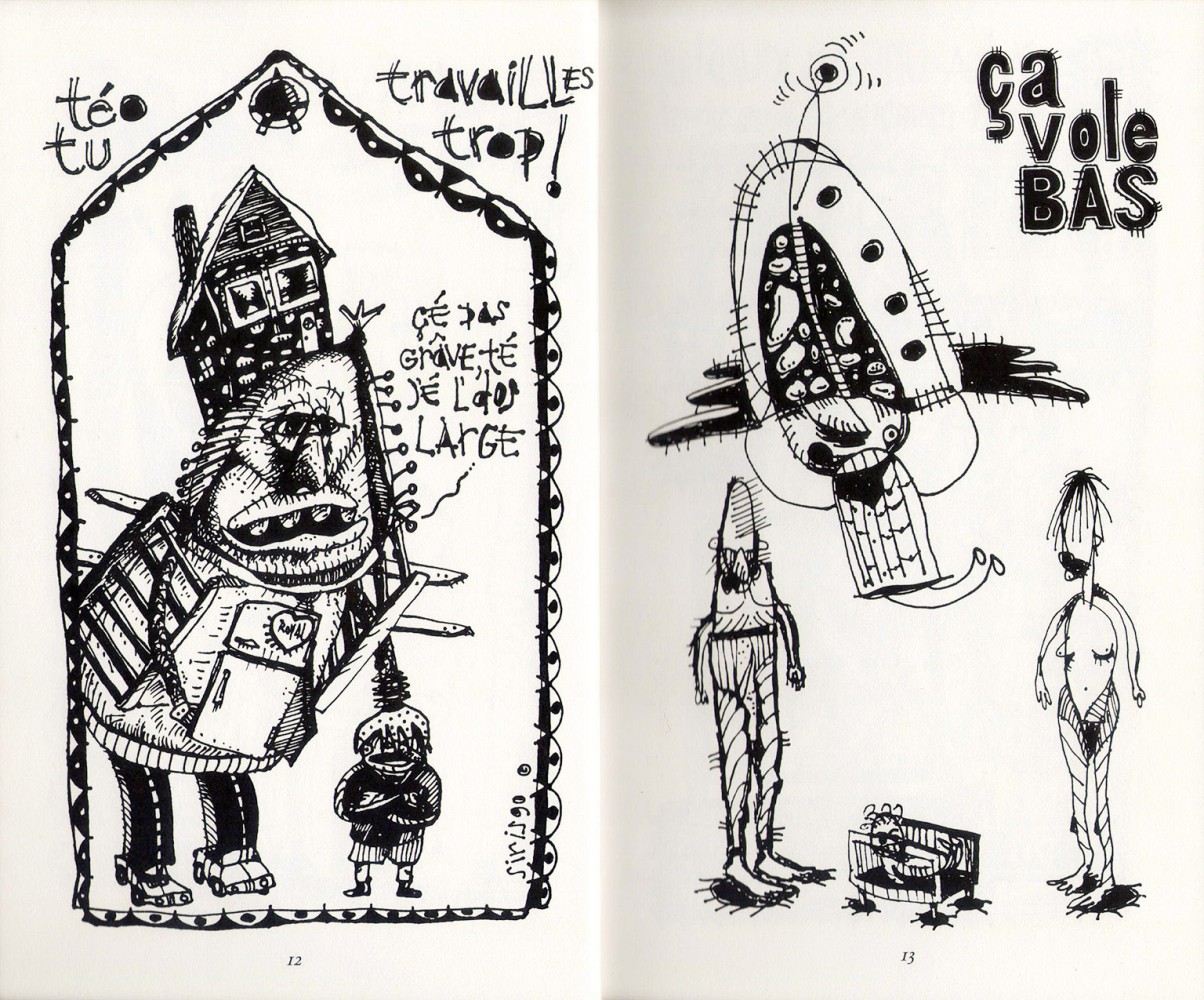 téo
tu
travaillES
trop!
çé pas
grâve,té
j'é l'dos
LARGE
ROYAL
sirisgo ©
12
ça
vole
BAS
13